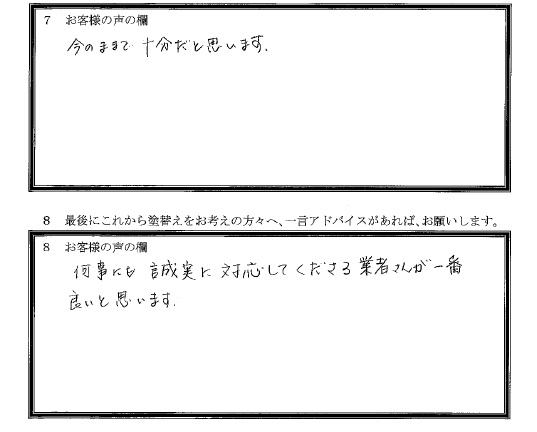 7 お客様の声の欄
今のままで十分だと思います.
8 最後にこれから塗替えをお考えの方々へ、一言アドバイスがあれば、お願いします。
8 お客様の声の欄
何事にも誠実に対応してくださる業者さんが一番
良いと思います.